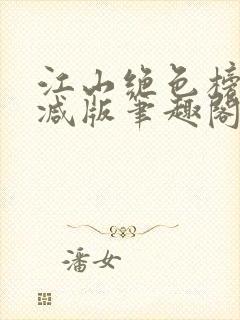 江山绝色榜
减版笔趣阁
潘女